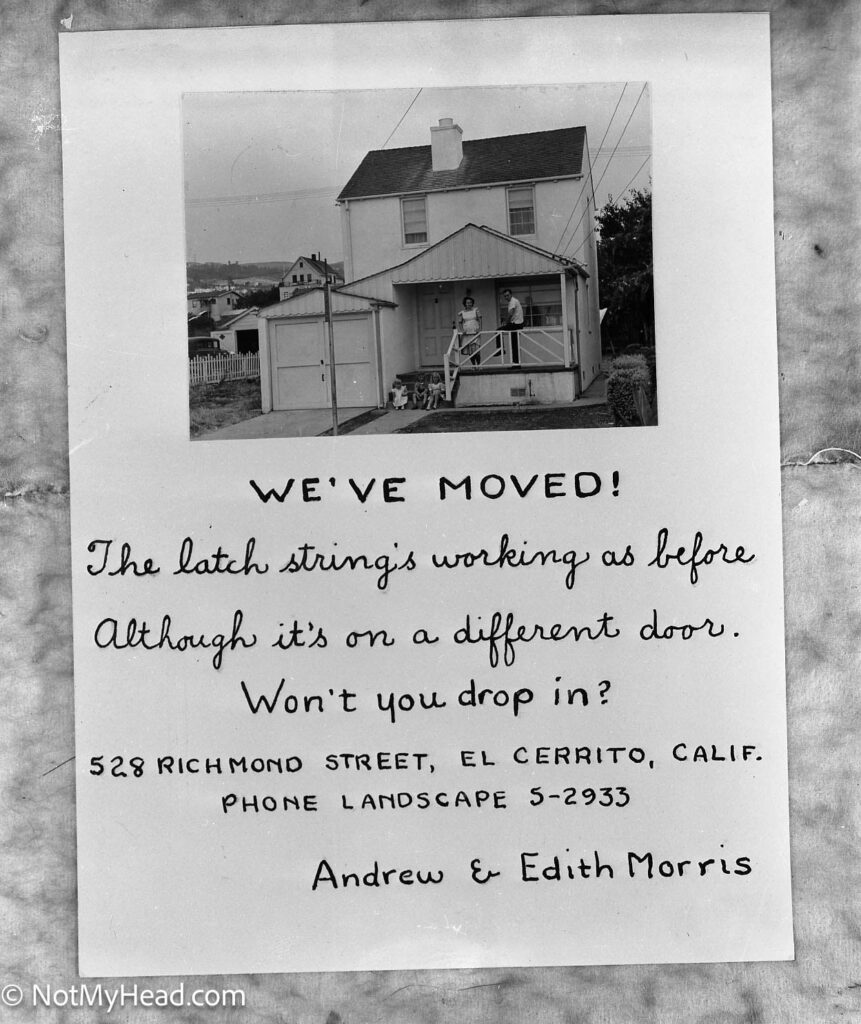 WE'VE MOVED!
The latch string's working as before
Although it's on a different door.
Won't you drop in?
528 RICHMOND STREET, EL CERRITO, CALIF.
PHONE LANDSCAPE 5-2933
Andrew & Edith Morris
© NotMyHead.com